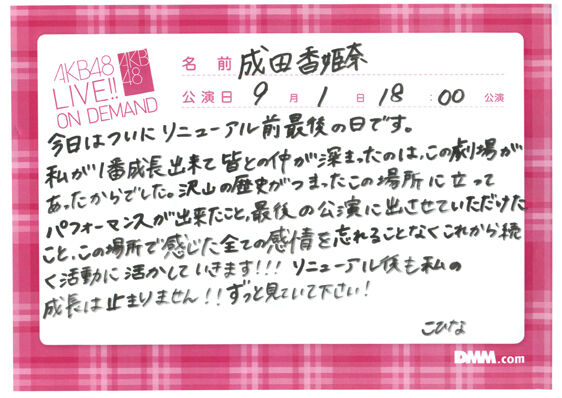 AKB48
LIVE!!
ON DEMAND
AKB
48
名前 成田香姫奈
公演日 9月1日 18:00 公演
今日はついにリニューアル前最後の日です。
私が1番成長出来て皆との仲が深まったのは、この劇場が
あったからでした。沢山の歴史がつまったこの場所に立って
パフォーマンスが出来たこと、最後の公演に出させていただけた
こと、この場所で感じた全ての感情を忘れることなくこれから続
く活動に活かしていきます!!! リニューアル後も私の
成長は止まりません!!ずっと見ていて下さい!
こひな
DMM.com